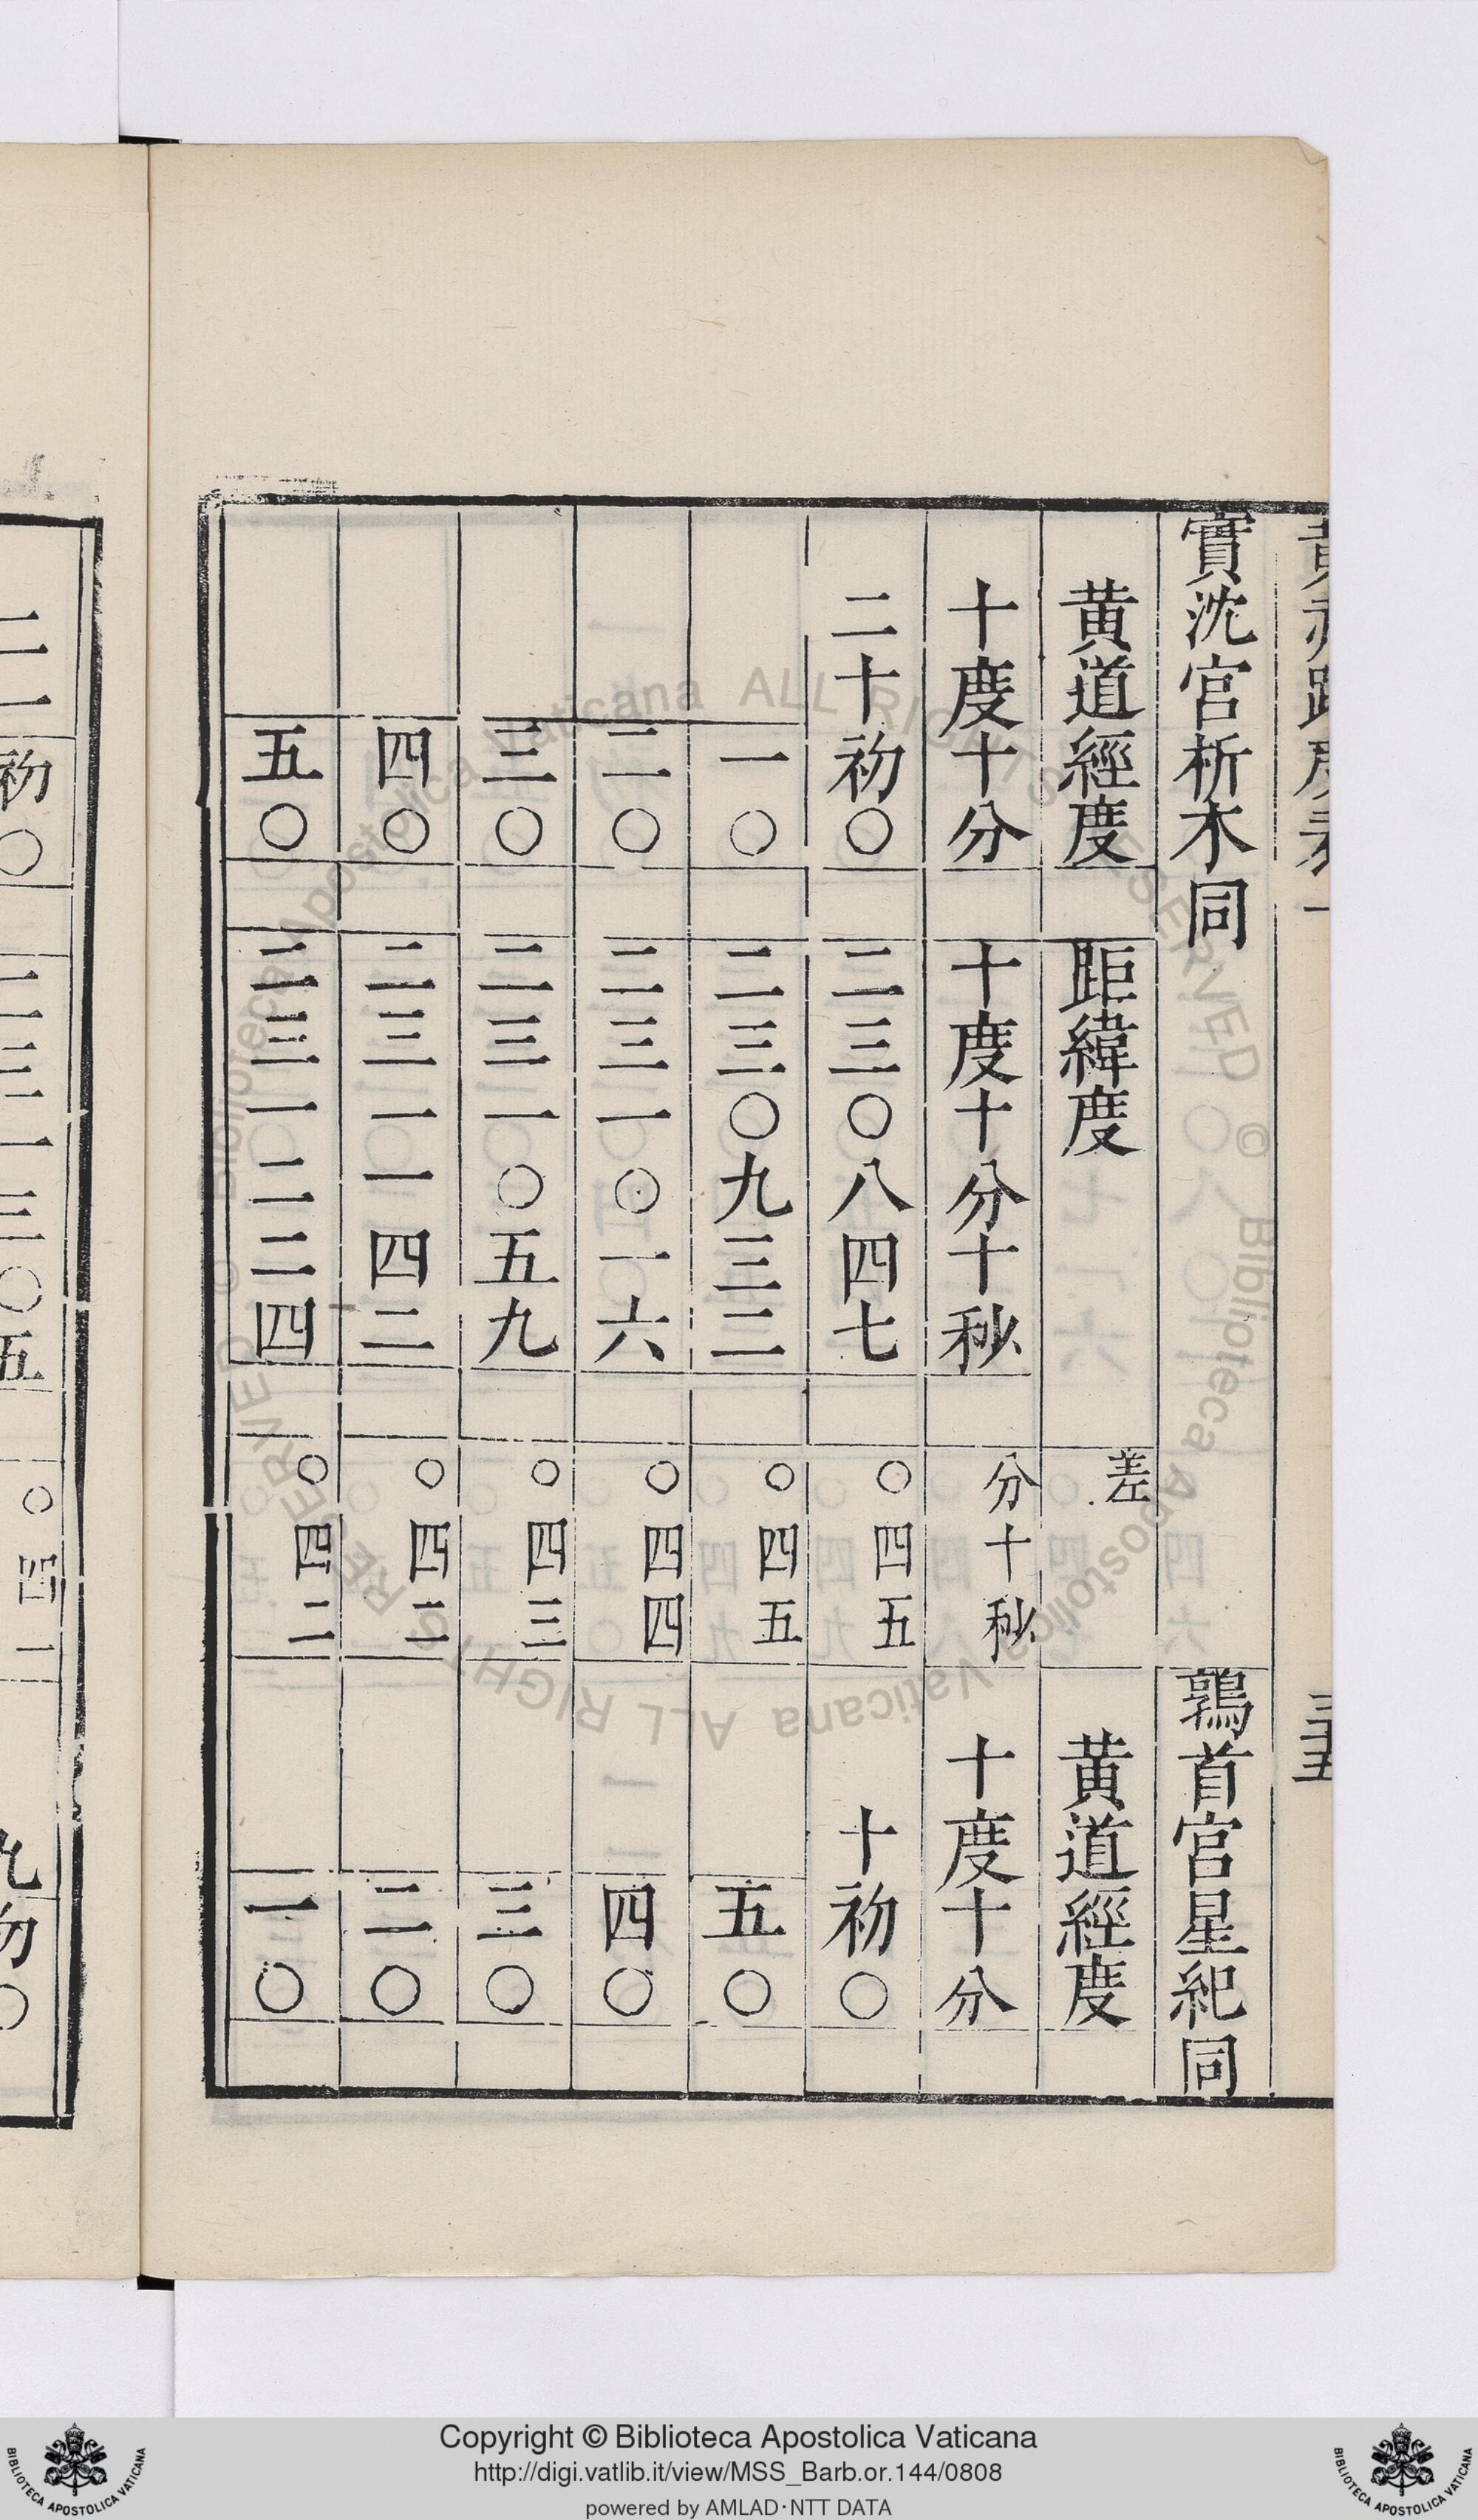 實沈宮析木同 鶉首宮星紀同
黃道經度 距緯度 差 黃道經度
十度十分 十度十分十秒 分十秒 十度十分
二十初〇 二三〇八四七 〇四五 十初〇
一〇 二三〇九三二 〇四五 五〇
二〇 二三一〇一六 〇四四 四〇
三〇 二三一〇五九 〇四三 三〇
四〇 二三一一四二 〇四二 二〇
五〇 二三一二二四 〇四二 一〇
ALL RIGHTS RESERVED © Biblioteca Apostolica Vaticana ALL RIGHTS RESERVED © Biblioteca Apostolica Vaticana
Copyright © Biblioteca Apostolica Vaticana
http://digi.vatlib.it/view/MSS_Barb.or.144/0808
powered by AMLAD·NTT DATA
BIBLIOTECA APOSTOLICA VATICANA
BIBLIOTECA APOSTOLICA VATICANA